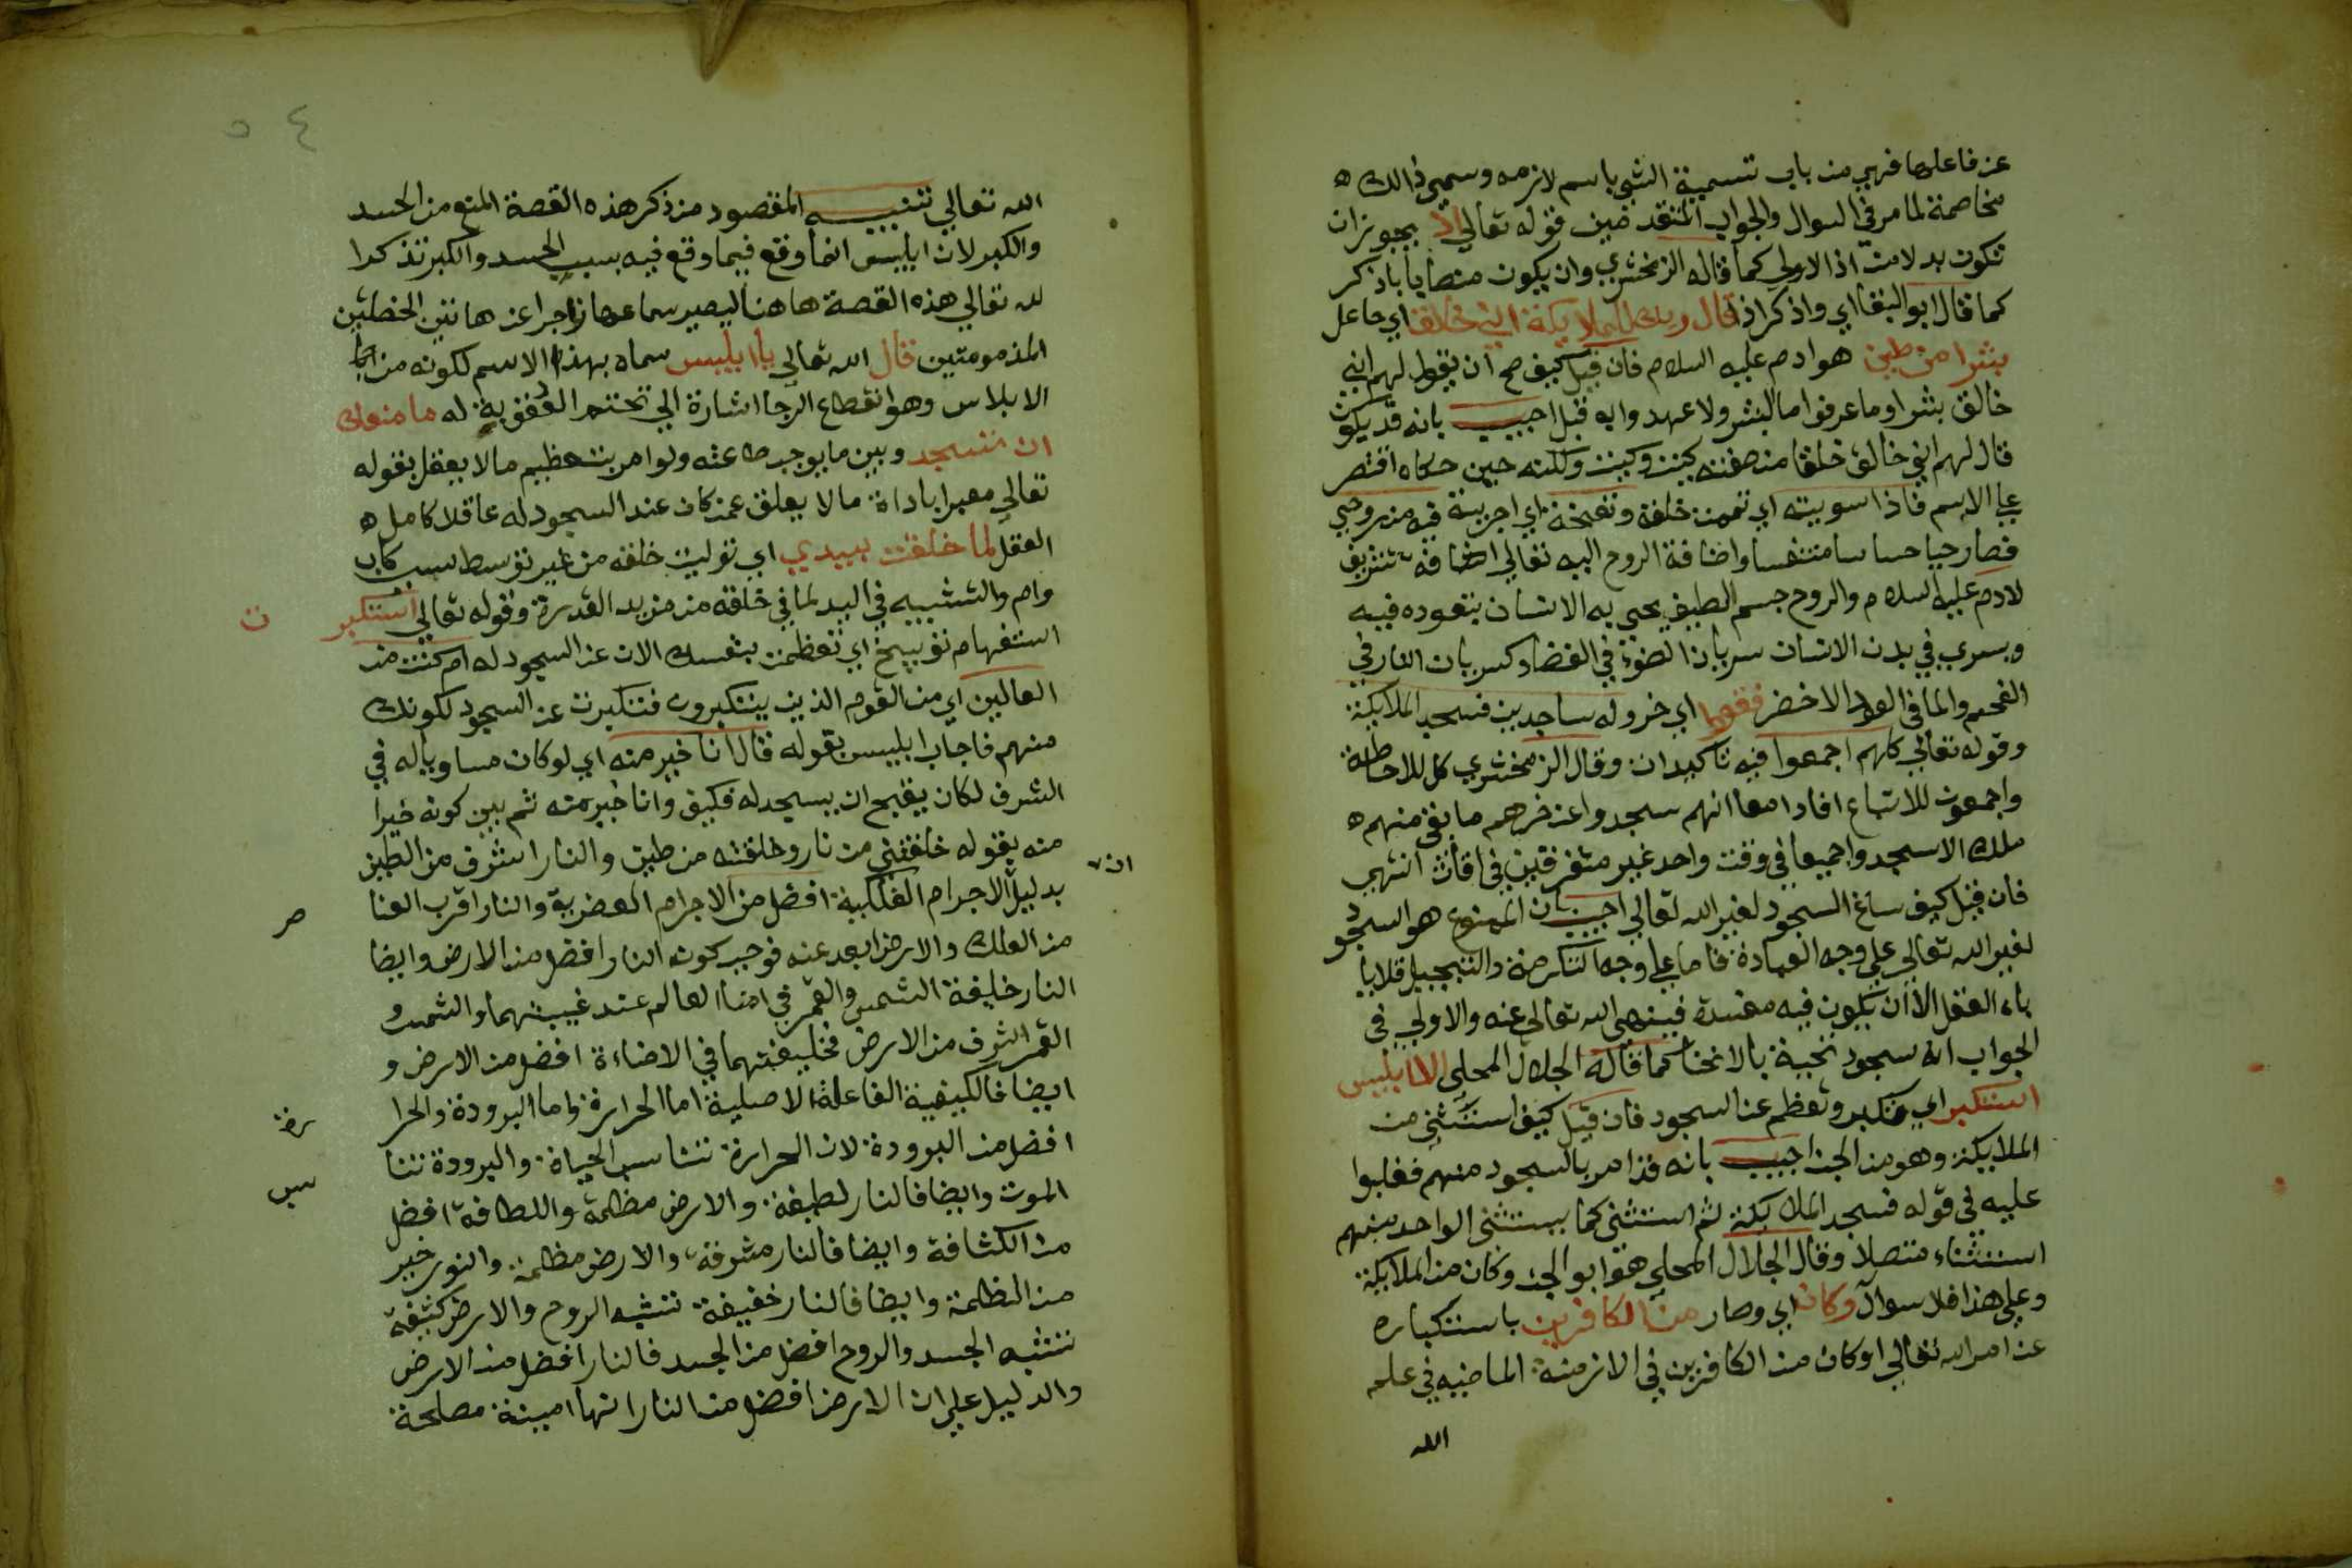 عن فاعلها فهي من باب تسمية الشي باسم لازمه وسمى ذالك ه
مخاصمة لما مر في السوال والجواب المتقدمين قوله تعالي اذ يجوز ان
تكون بدلا من اذ الاولي كما قاله الزمخشري وان يكون منصابا باذكر
كما قال ابو البقا اي واذكر اذ قال ربك للملايكة اني خالق اي جاعل
بشرا من طين هو ادم عليه السلام فان قيل كيف صح ان يقول لهم اني
خالق بشرا وما عرفوا ما البشر ولا عهدوا به قبل اجيب بانه قد يكون
قال لهم اني خالق خلقا من صفته كيت وكيت ولكنه حين حكاه اقتصر
علي الاسم فاذا سويته اي تممت خلقة ونفخة اي اجريت فيه من روحي
فصار حيا حساسا متنفسا واضافة الروح اليه تعالي اضافة تشريف
لادم عليه السلام والروح جسم لطيف يحيى به الانسان بنفوده فيه
ويسري في بدن الانسان سريان الضوء في الفضا وكسريان النار في
الفحم والما في العود الاخضر فقعوا اي خروا له ساجدين فسجد الملايكة
وقوله تعالي كلهم اجمعوا فيه تاكيدان وقال الزمخشري كل للاحاطة
واجمعون للاتباع افادا معا انهم سجدوا عن اخرهم ما بقي منهم ه
ملك الا سجد واجميعا في وقت واحد غير متفرقين في اقات انتهي
فان قيل كيف ساغ السجود لغير الله تعالي اجيب بان الممنوع هو السجود
لغير الله تعالي علي وجه العبادة فاما علي وجه التكرمة والتبجيل فلا يا
باه العقل الا ان يكون فيه مفسدة فينهى الله تعالي عنه والاولي في
الجواب انه سجود تحية بالانحنا كما قاله الجلال المحلى الا ابليس
استكبر اي تكبر وتعظم عن السجود فان قيل كيف استثني من
الملايكة وهو من الجن اجيب بانه قد امر بالسجود منهم فغلبوا
عليه في قوله فسجد الملايكة ثم استثنى كما يستثنى الواحد منهم
استثناء متصلا وقال الجلال المحلي هو ابو الجن وكان من الملايكة
وعلي هذا فلا سوال وكان اي وصار من الكافرين باستكباره
عن امر الله تعالي او كان من الكافرين في الازمنة الماضيه في علم
الله
٥٤
الله تعالي تنبيه المقصود من ذكر هذه القصة المنع من الحسد
والكبر لان ابليس انما وقع فيما وقع فيه بسبب الحسد والكبر تذكرا
لله تعالي هذه القصة هاهنا ليصير سماعها زاجرا عن هاتين الخصلتين
المذمومتين قال الله تعالي يا ابليس سماه بهذا الاسم لكونه من
الابلاس وهو انقطاع الرجا اشارة الي تحتم العقوبة له ما منعك
ان تسجد وبين ما يوجب طاعته ولو امر بتعظيم ما لا يعقل بقوله
تعالي معبرا باداة ما لا يعقل عمن كان عند السجود له عاقلا كامل ه
العقل لما خلقت بيدي اي توليت خلقه من غير توسط سبب كاب
وام والتشبيه في اليد لما في خلقه من مزيد القدرة وقوله تعالي استكبر
ت
استفهام توبيخ اي تعظمت بنفسك الان عن السجود له ام كنت من
العالين اي من القوم الذين يتكبرون فتكبرت عن السجود لكونك
منهم فاجاب ابليس بقوله قال انا خير منه اي لو كان مساويا له في
الشرف لكان يقبح ان يسجد له فكيف وانا خير منه ثم بين كونه خيرا
منه بقوله خلقتني من نار وخلقته من طين والنار اشرف من الطين
ان
بدليل الاجرام الفلكية افضل من الاجرام العنصرية والنار اقرب العنا
صر
من الفلك والارض ابعد عنه فوجب كون النار افضل من الارض وايضا
النار خليفة الشمس والقمر في اضا العالم عند غيبتهما والشمس و
القمر اشرف من الارض فخليفتهما في الاضاءة افضل من الارض و
ايضا فالكيفية الفاعلة الاصلية اما الحرارة واما البرودة والحرا
رة
افضل من البرودة لان الحرارة تناسب الحياة والبرودة تنا
سب
الموت وايضا فالنار لطيفة والارض مظلمة واللطافة افضل
من الكثافة وايضا فالنار مشرقة والارض مظلمة والنور خير
من الظلمة وايضا فالنار خفيفة تشبه الروح والارض كثيفة
تشبه الجسد والروح افضل من الجسد فالنار افضل من الارض
والدليل علي ان الارض افضل من النار انها امينة مصلحة